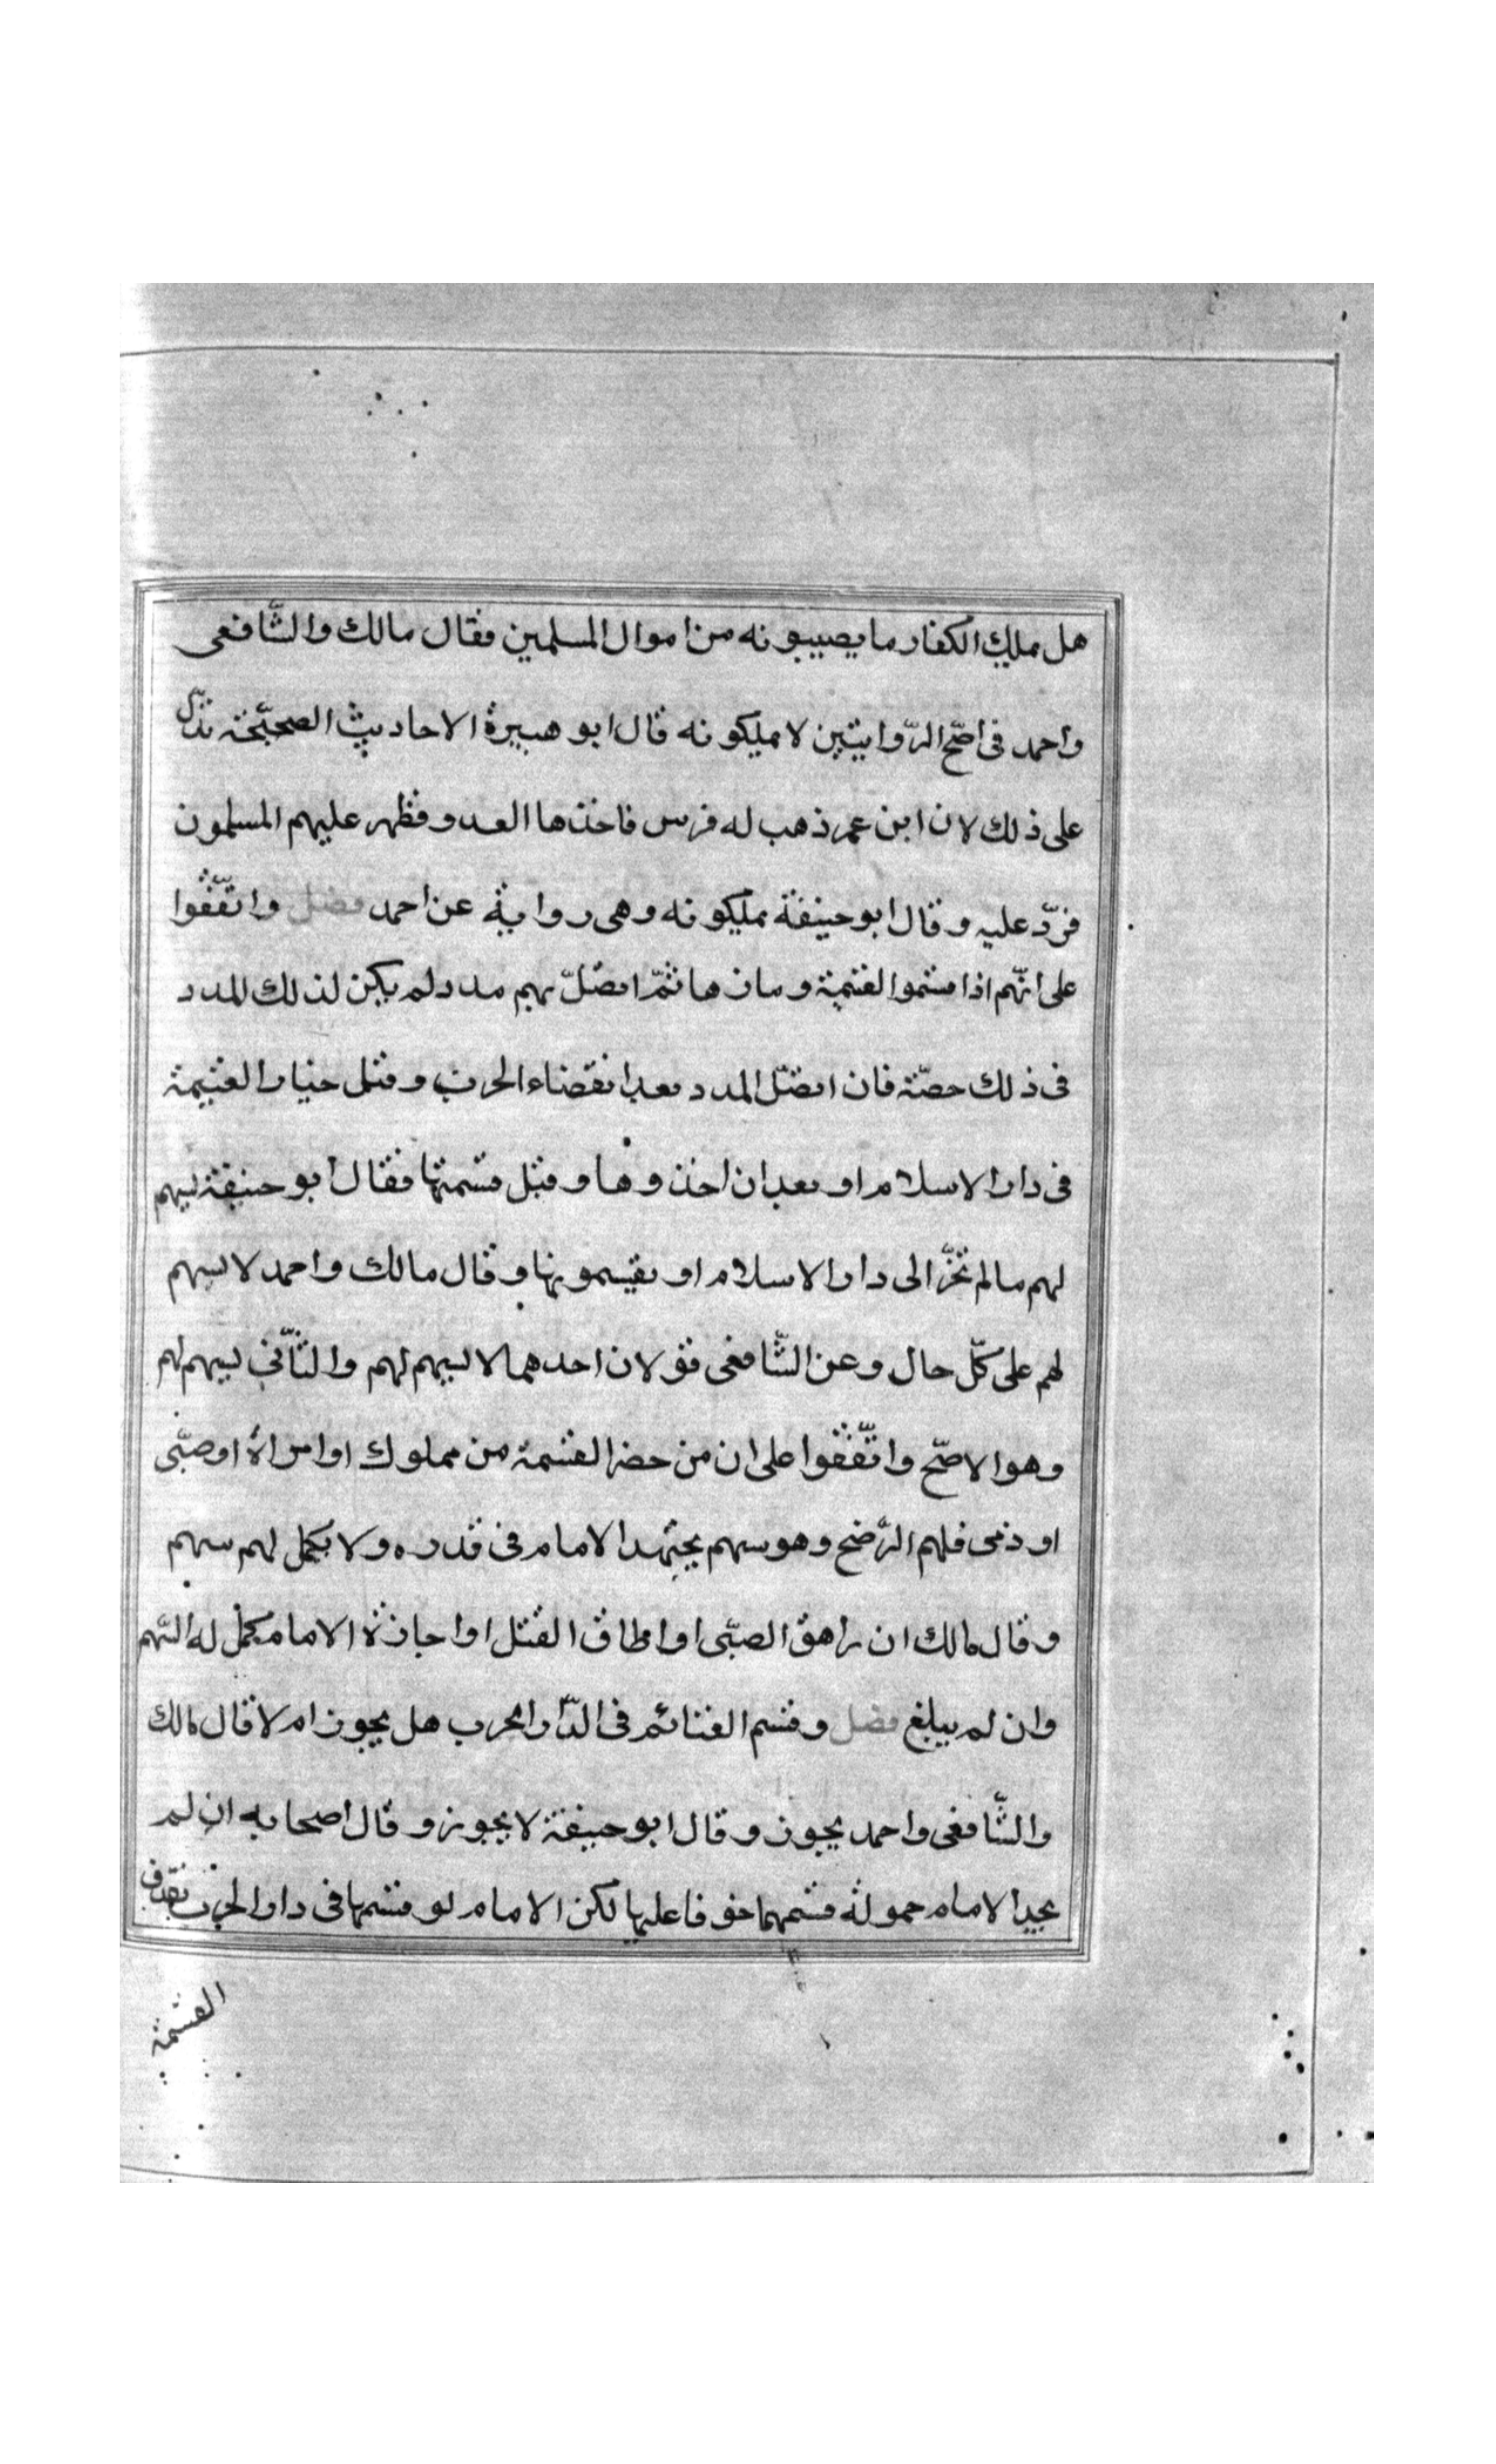 هل يملك الكفار ما يصيبونه من اموال المسلمين فقال مالك والشّافعى
واحمد فى اصحّ الرّوايتين لا يملكونه قال ابو هبيرة الاحاديث الصحيّحة تدلّ
على ذلك لان ابن عمر ذهب له فرس فاخذها العدو فظهر عليهم المسلمون
فردّ عليه وقال ابو حنيفة يملكونه وهى رواية عن احمد فصل واتّفقوا
على انّهم اذا قسموا الغنيمة وحازها ثمّ اتصلّ بهم مدد لم يكن لذلك المدد
فى ذلك حصّة فان اتصّل المدد بعد انقضاء الحرب وقبل حيازا الغنيمة
فى دار الاسلام او بعد ان اخذوها وقبل قسمتها فقال ابو حنيفة يسهم
لهم مالم تحزّ الى دار الاسلام او يقيسمونها وقال مالك واحمد لا يسهم
لهم على كلّ حال وعن الشّافعى قولان احدهما لا يسهم لهم والثّانى يسهم لهم
وهو الاصحّ واتّفقوا على ان من حضر القسمة من مملوك او امراة او صبّى
او ذمى فلهم الرّضخ وهو سهم يجتهد الامام فى قدره ولا يكمل لهم سهم
وقال مالك ان راهق الصبّى او اطاق القتل او اجازة الامام يكمل له السّهم
وان لم يبلغ فصل وقسم الغنائم فى الدّار الحرب هل يجوز ام لا قال مالك
والشّافعى واحمد يجوز وقال ابو حنيفة لا يجوز وقال اصحابه ان لم
يجد الامام حمولة قسمهما خوفا عليها لكن الامام لو قسمها فى دار الحرب نفذت
القسمة